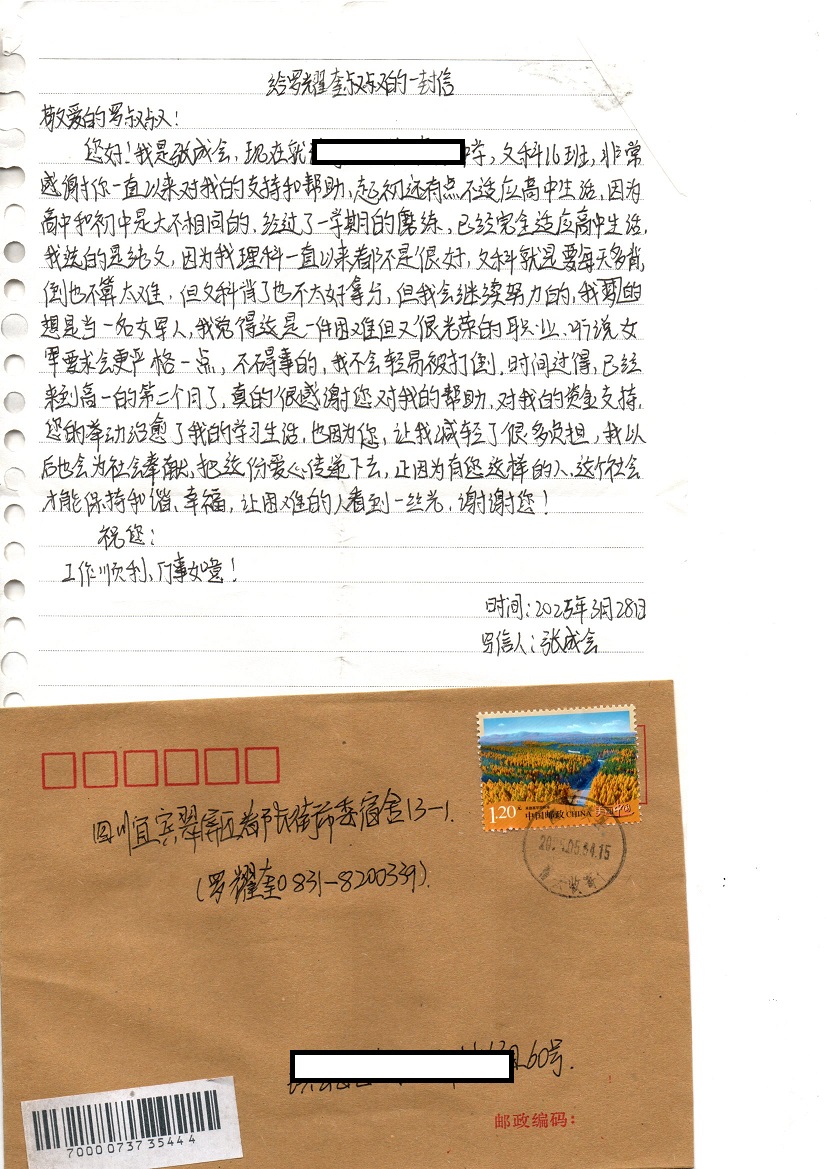 给罗耀奎叔叔的一封信
敬爱的罗叔叔！
您好！我是张成会，现在就 学，文科16班，非常
感谢你一直以来对我的支持和帮助，起初还有点不适应高中生活，因为
高中和初中是大不相同的，经过了一学期的磨练，已经完全适应高中生活，
我选的是纯文，因为我理科一直以来都不是很好，文科就是要每天多背，
倒也不算太难，但文科背了也不太好拿分，但我会继续努力的，我的
想是当一名女军人，我觉得这是一件困难但又很光荣的职业，听说女
军要求会更严格一点，不碍事的，我不会轻易被打倒，时间过得，已经
来到高一的第二个月了，真的很感谢您对我的帮助，对我的资金支持，
您的举动治愈了我的学习生活，也因为您，让我减轻了很多负担，我以
后也会为社会奉献，把这份爱心传递下去，正因为有您这样的人，这个社会
才能保持和谐、幸福，让困难的人看到一丝光，谢谢您！
祝您：
工作顺利，万事如意！
时间：2025年3月28日
写信人：张成会
1.20元
中国邮政 CHINA
美丽中国
05.04.15
四川宜宾翠屏区都长街市委宿舍13-1.
（罗耀奎0831-8200339）.
60号.
邮政编码：
7000073735444